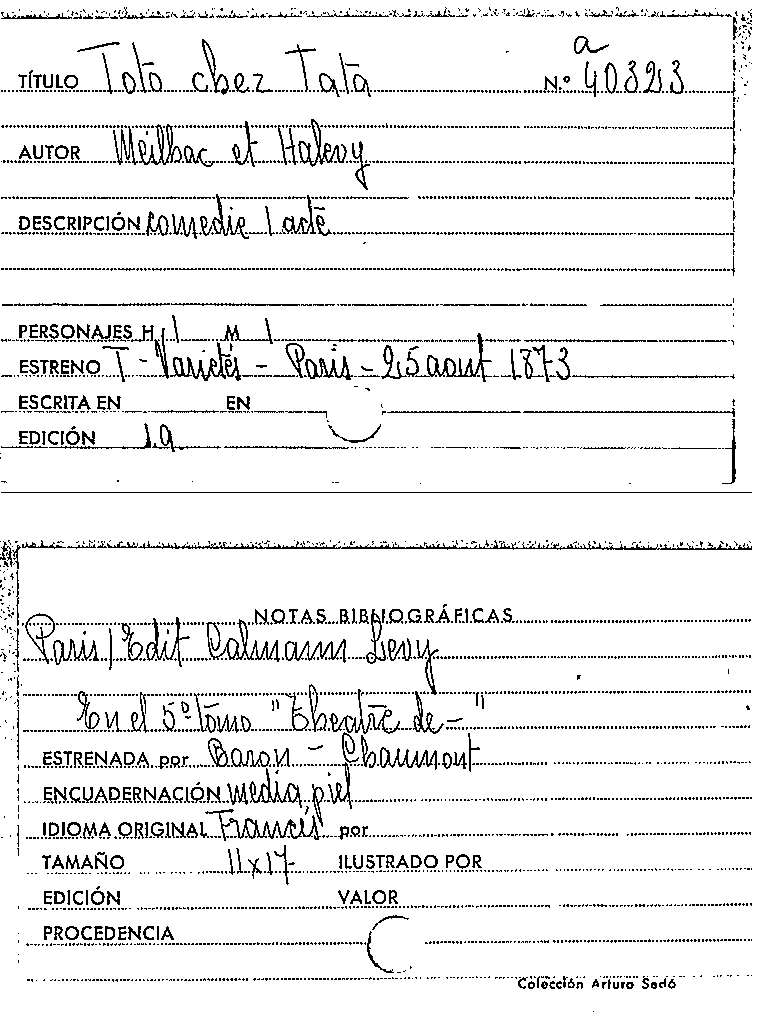 a
TÍTULO Toto chez Tata N.º 40323
AUTOR Meilhac et Halevy
DESCRIPCIÓN comedie 1 acte
PERSONAJES H 1 M 1
ESTRENO T - Varietés - Paris - 25 aout 1873
ESCRITA EN EN
EDICIÓN 1.a
NOTAS BIBLIOGRÁFICAS
Paris / Edit Calmann Levy
En el 5º tomo "Theatre de - "
ESTRENADA por Baron - Chaumont
ENCUADERNACIÓN media piel
IDIOMA ORIGINAL Francés por
TAMAÑO 11x17 ILUSTRADO POR
EDICIÓN VALOR
PROCEDENCIA
Colección Arturo Sedó